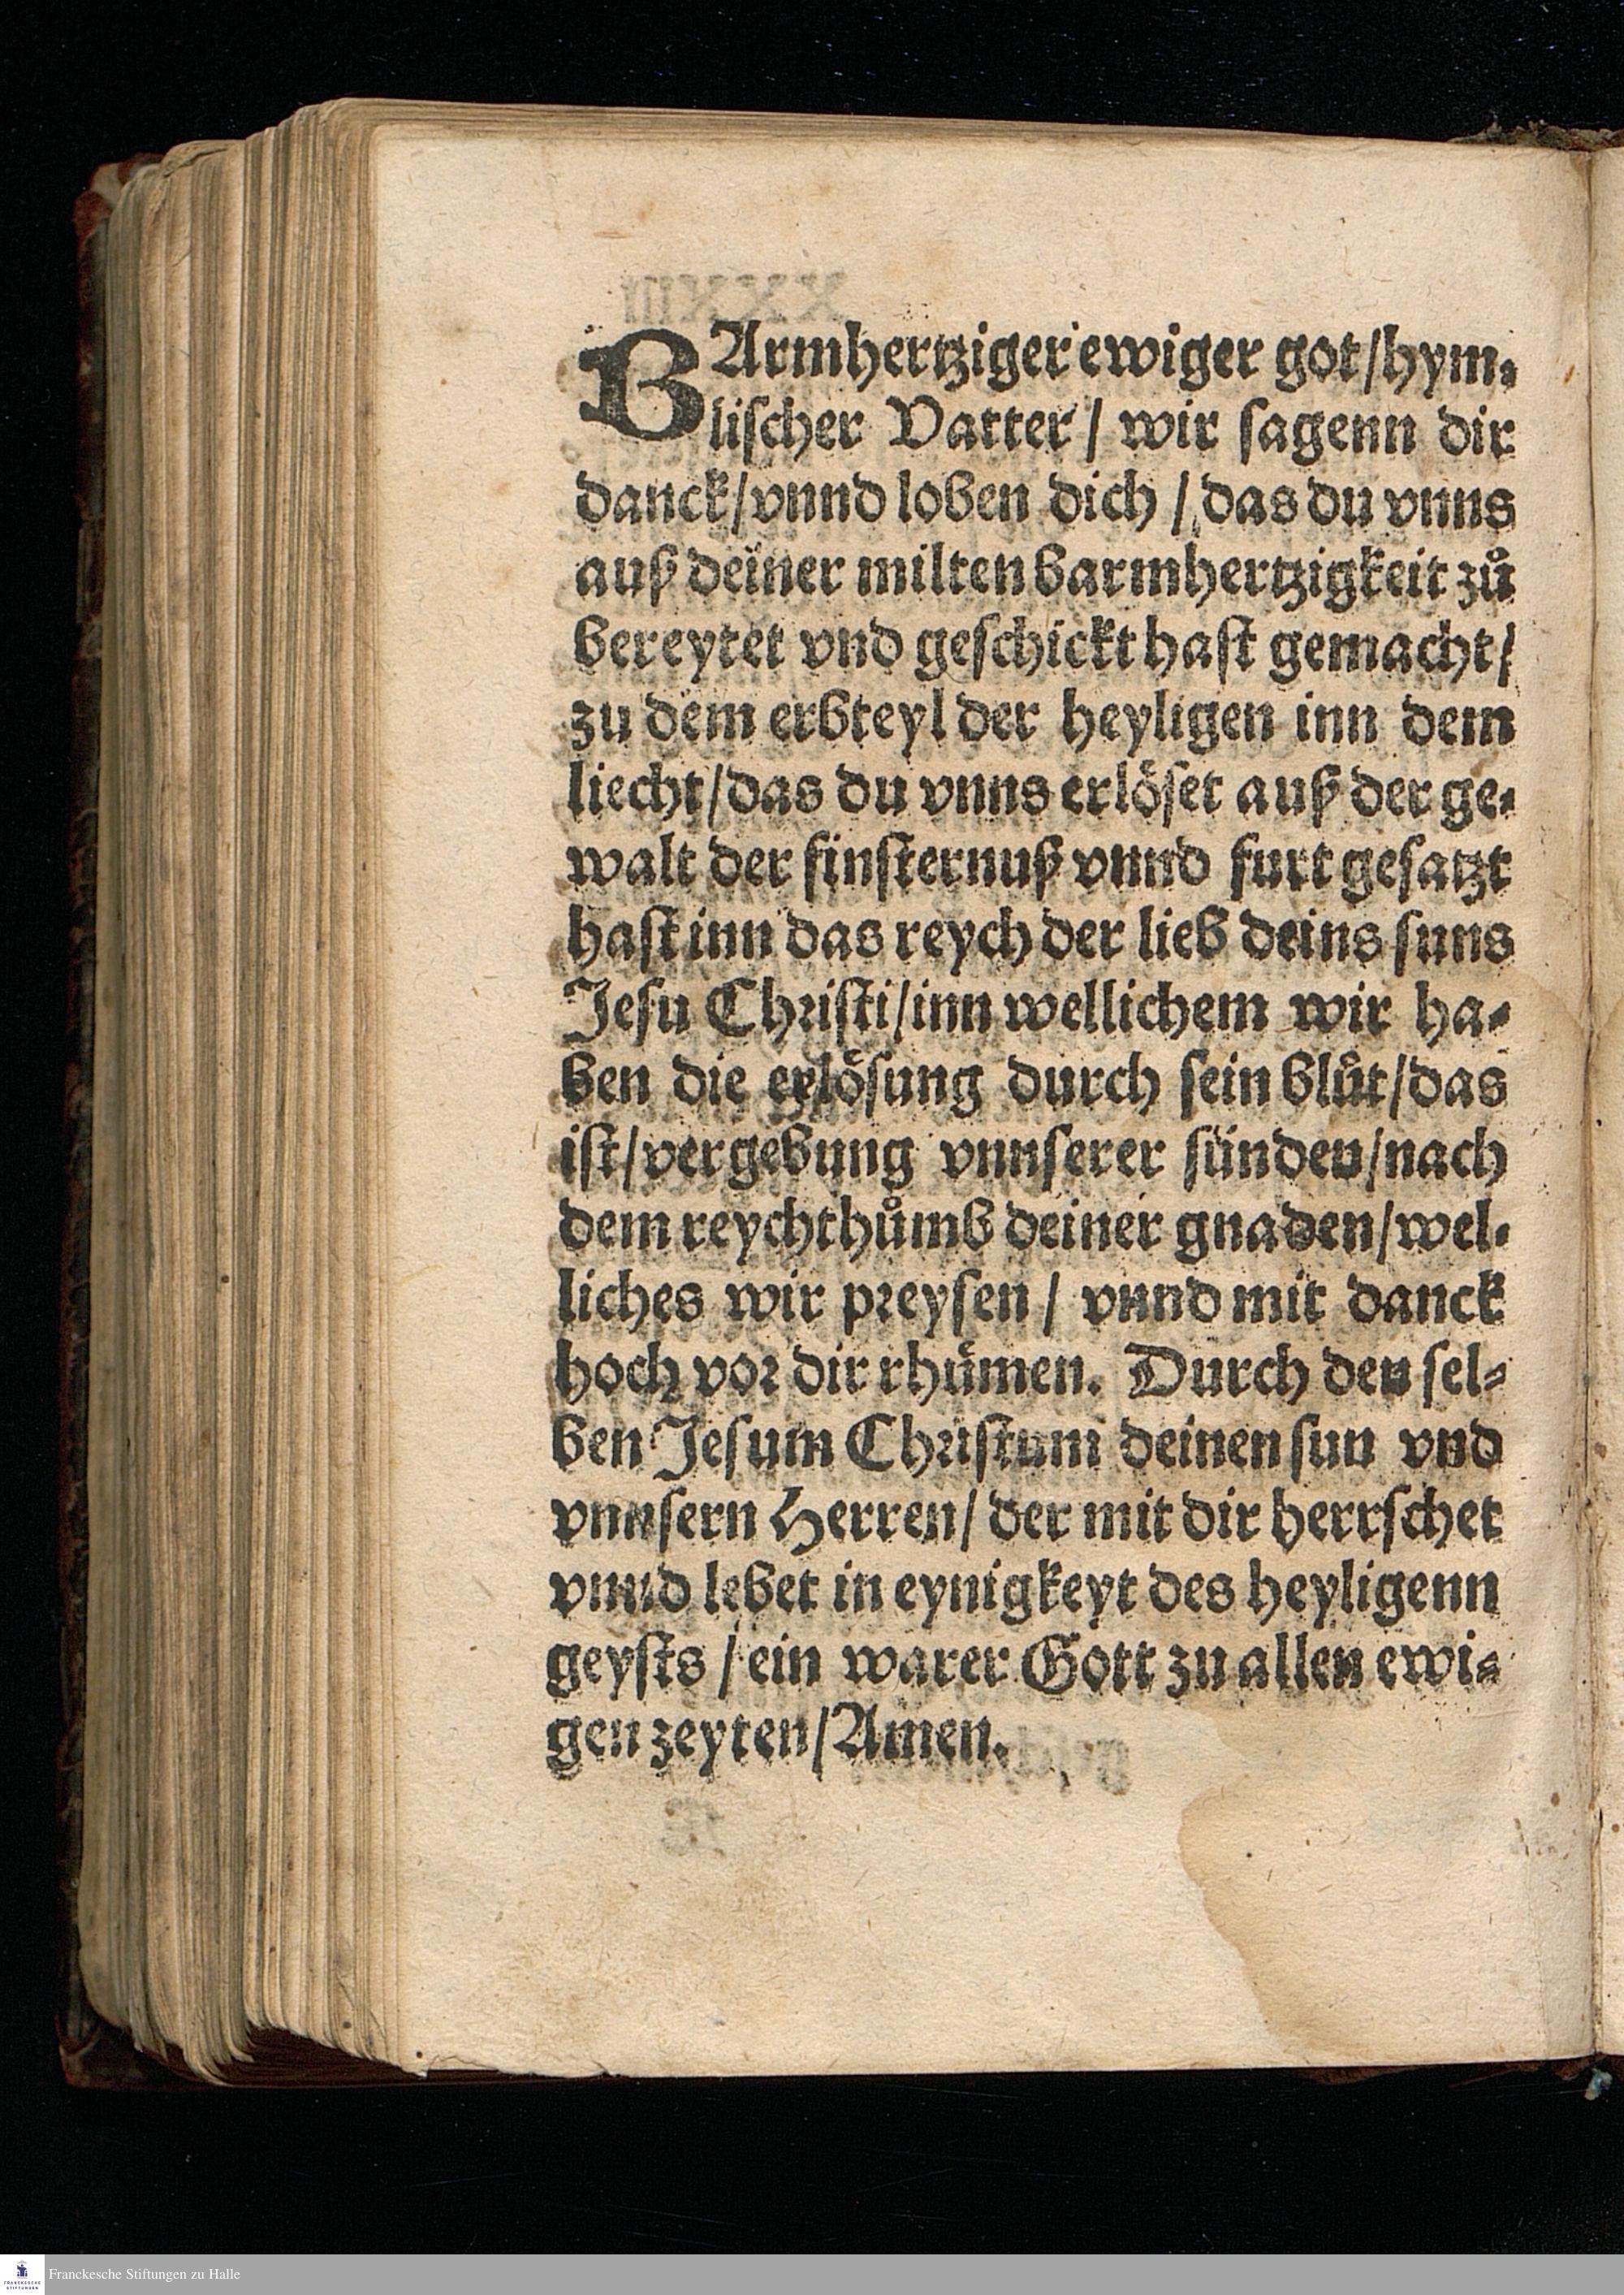 BArmhertziger ewiger got/hym⸗
lischer Vatter / wir sagenn dir
danck/vnnd loben dich / das du vnns
auß deiner milten barmhertzigkeit zů
bereytet vnd geschickt hast gemacht/
zu dem erbteyl der heyligen inn dem
liecht/das du vnns erlöset auß der ge⸗
walt der finsternuß vnnd furt gesatzt
hast inn das reych der lieb deins suns
Jesu Christi/inn wellichem wir ha⸗
ben die erlösung durch sein blůt/das
ist/vergebung vnnserer sünden/nach
dem reychthůmb deiner gnaden/wel⸗
liches wir preysen / vnnd mit danck
hoch vor dir rhümen. Durch den sel⸗
ben Jesum Christum deinen sun vnd
vnnsern Herren/ der mit dir herrschet
vnnd lebet in eynigkeyt des heyligenn
geysts / ein warer Gott zu allen ewi⸗
gen zeyten/Amen.
Franckesche Stiftungen zu Halle